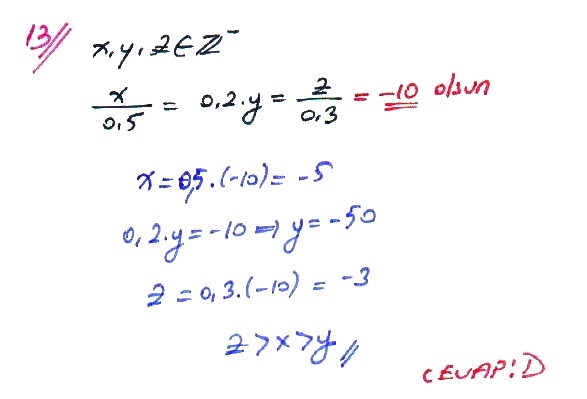 13// x, y, z ∈ Z⁻
x/0,5 = 0,2.y = z/0,3 = -10 olsun
x = 0,5.(-10) = -5
0,2.y = -10 ⇒ y = -50
z = 0,3.(-10) = -3
z > x > y //
CEVAP: D